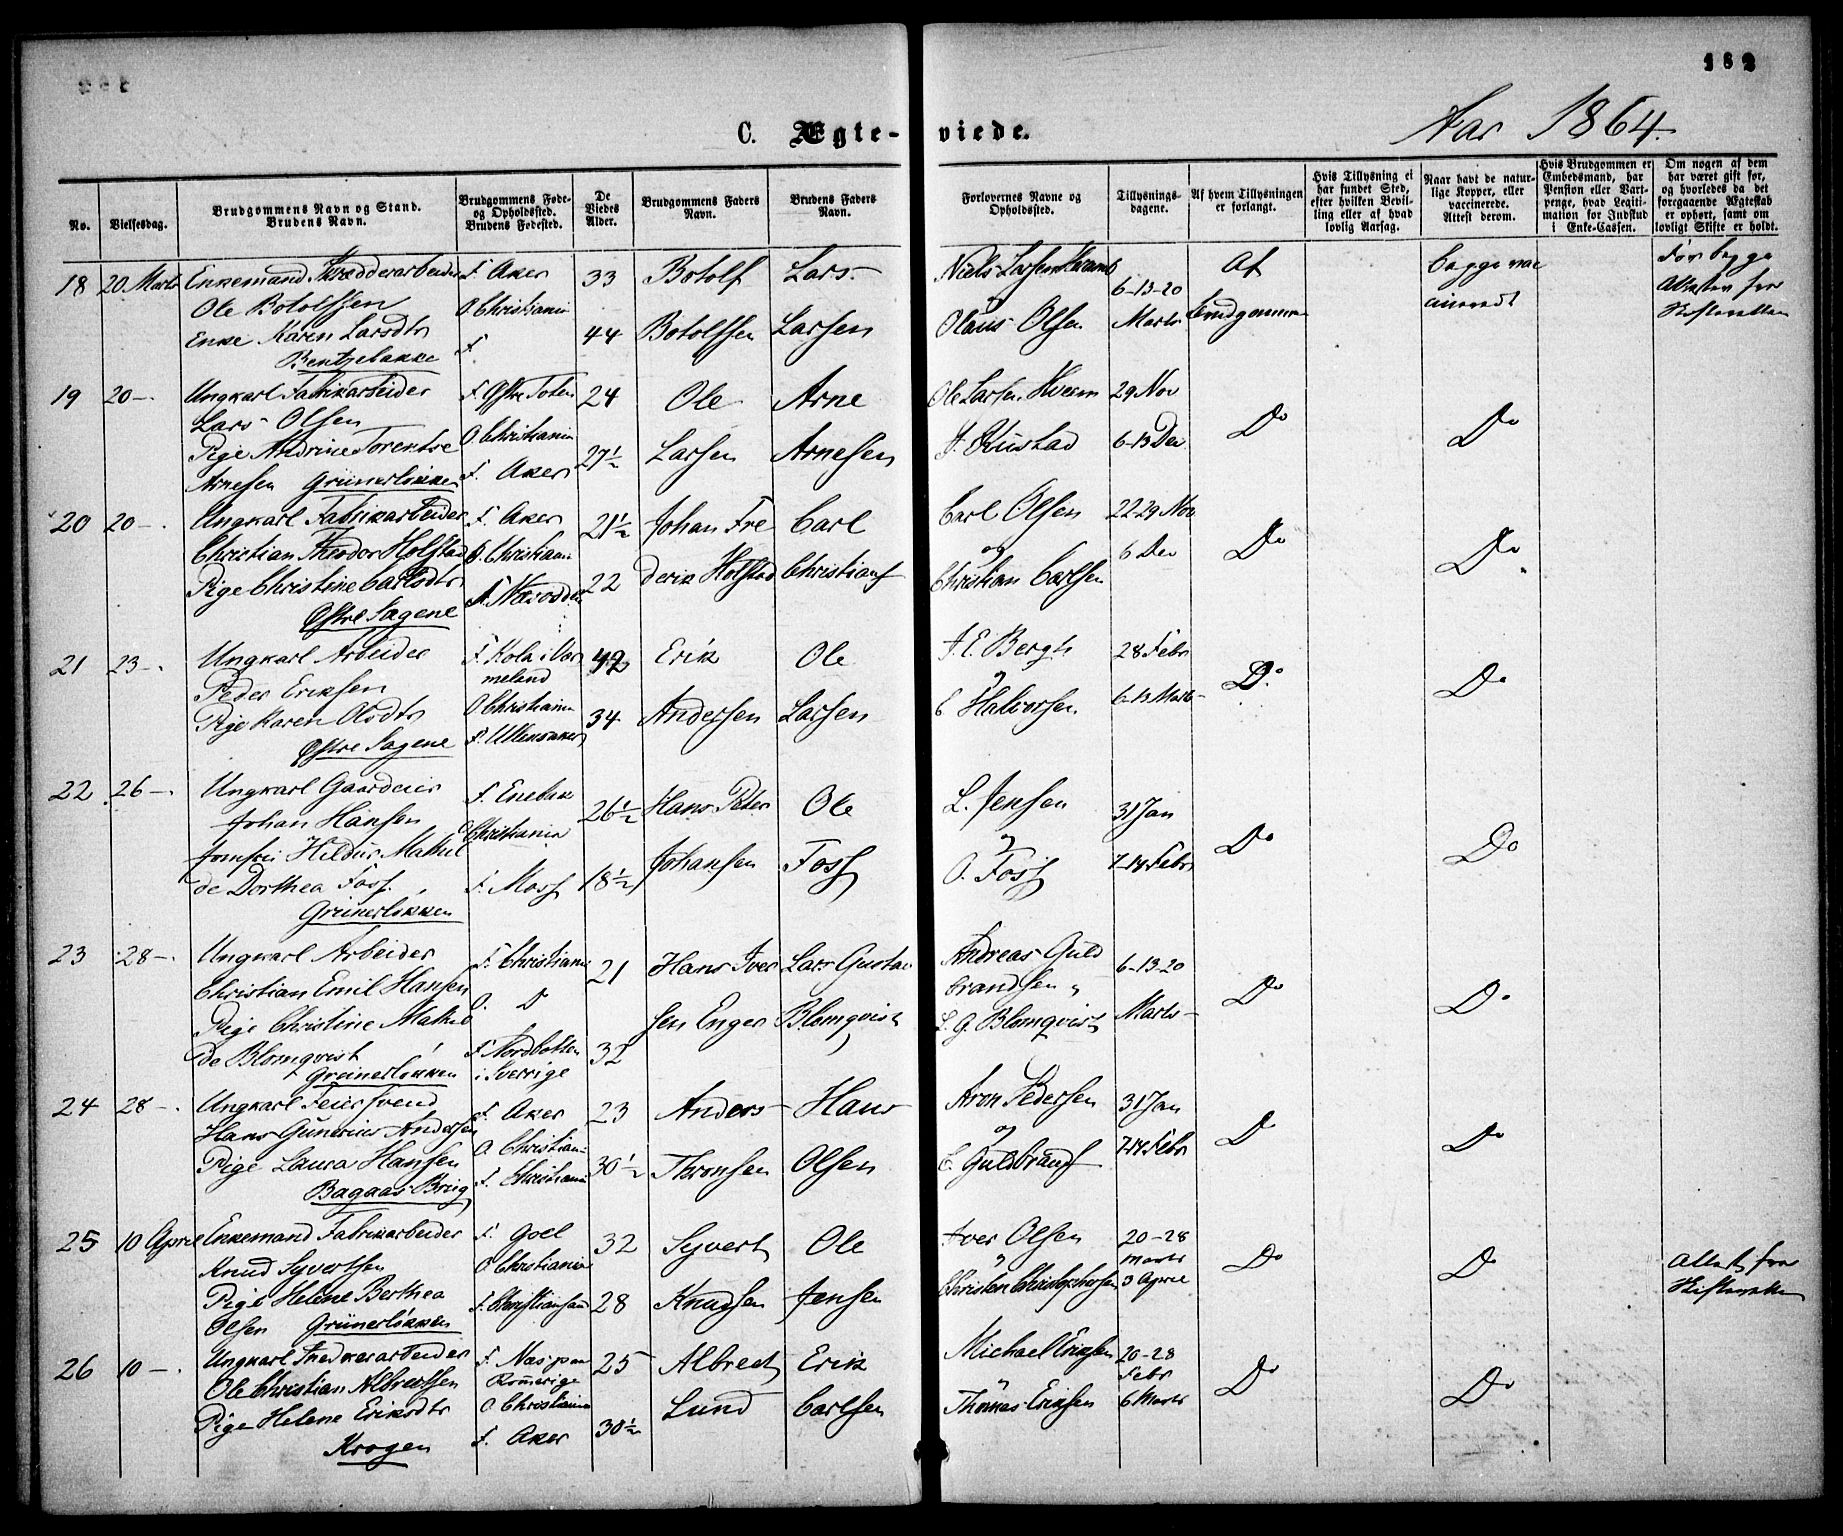 182
C. Ægte-viede.
Aar 1864.
No.
Vielsesdag.
Brudgommens Navn og Stand.
Brudens Navn.
Brudgommens Føde-
og Opholdssted.
Brudens Fødested.
De
Viedes
Alder.
Brudgommens Faders
Navn.
Brudens Faders
Navn.
Forlovernes Navne og
Opholdssted.
Tillysnings-
dagene.
Af hvem Tillysningen
er forlangt.
Hvis Tillysning ei
har fundet Sted,
efter hvilken Bevil-
ling eller af hvad
lovlig Aarsag.
Naar havt de natur-
lige Kopper, eller
vaccinerede.
Attest derom.
Hvis Brudgommen er
Embedsmand, har
Pension eller Vart-
penge, hvad Legiti-
mation for Indskud
i Enke-Cassen.
Om nogen af dem
har været gift før,
og hvorledes da det
foregaaende Ægteskab
er ophørt, samt om
lovligt Skifte er holdt.
18 20 Marts Enkemand Skrædderarbeider F. Aker 33 Botolf Lars
Ole Botolfsen O Christiania
Enke Karen Larsdtr F 44 Botolfsen Larsen
Bentzebakke
Niels Larsen 6-13-20 Af begge vac For begge
Olaus Olsen Marts Brudgommen cineret Attester fra
Skifteretten
19 20 — Ungkarl Fabrikarbeider F. Østre Toten 24 Ole Arne
Lars Olsen O Christiania
Pige Andrine Lorentse 27½ Larsen Arnesen
Arnesen Grünerløkken F. Aker
Ole Larsen Hveem 29 Nov
Rustad 6-13 Dec Do Do
20 20 — Ungkarl Fabrikarbeider F. Aker 21½ Johan Fre Carl
Christian Theodor Holstad O Christiania
Pige Christine Carlsdtr F. Næsodden 22 derik Holstad Christians
Østre Sagene
Carl Olsen 22-29 Nov
og
Christian Carlsen 6 Dec Do Do
21 23 — Ungkarl Arbeider F. Kola i Ver 42 Erik Ole
Peder Eriksen meland
Pige Karen Olsdtr O Christiania 34 Andersen Larsen
Østre Sagene F. Ullensaker
J. E. Bergh 28 Febr
Halvorsen 6-13 Marts Do Do
22 26 — Ungkarl Gaardeier F. Enebak 26½ Hans Peter Ole
Johan Hansen O Christiania
Jomfru Hildur Mathil Johansen Foss
de Dorthea Foss F. Moss 18½
Grünerløkken
L. Jensen 31 Jan
og
O. Foss 7-14 Febr Do Do
23 28 — Ungkarl Arbeider F. Christiania 21 Hans Iver Lars Gustav
Christian Emil Hansen O. D
Pige Christine Mathil sen Enger Blomqvist
de Blomqvist F. Nordbotten 32
Grünerløkken i Sverrige
Andreas Guld 6-13-20
brandsen
L. G. Blomqvist Marts Do Do
24 28 — Ungkarl Feiersvend F. Aker 23 Anders Hans
Hans Gunerius Andersen O Christian
Pige Laura Hansen F. Christiania 30½ Thronsen Olsen
Bagaas Brug
Aron Pedersen 31 Jan
og
Guldbrands 7-14 Febr Do Do
25 10 April Enkemand Fabrikarbeider F. Goel 32 Syvert Ole
Knud Syvertsen O Christiania
Pige Helene Berthea F. Christiansand 28 Knudsen Jensen
Olsen Grünerløkken
Iver Olsen 20-28
Marts
Christen Christophersen 3 April Do Do Attest fra
Skifteretten
26 10 — Ungkarl Snedkerarbeider F. Næs paa 25 Albrecht Erik
Ole Christian Albertsen Romerige
Pige Helene Eriksdtr O Christiania Lund Carlsen
Krogen F. Aker 30½
Michael Eriksen 20-28
Febr
Thomas Eriksen 6 Marts Do Do